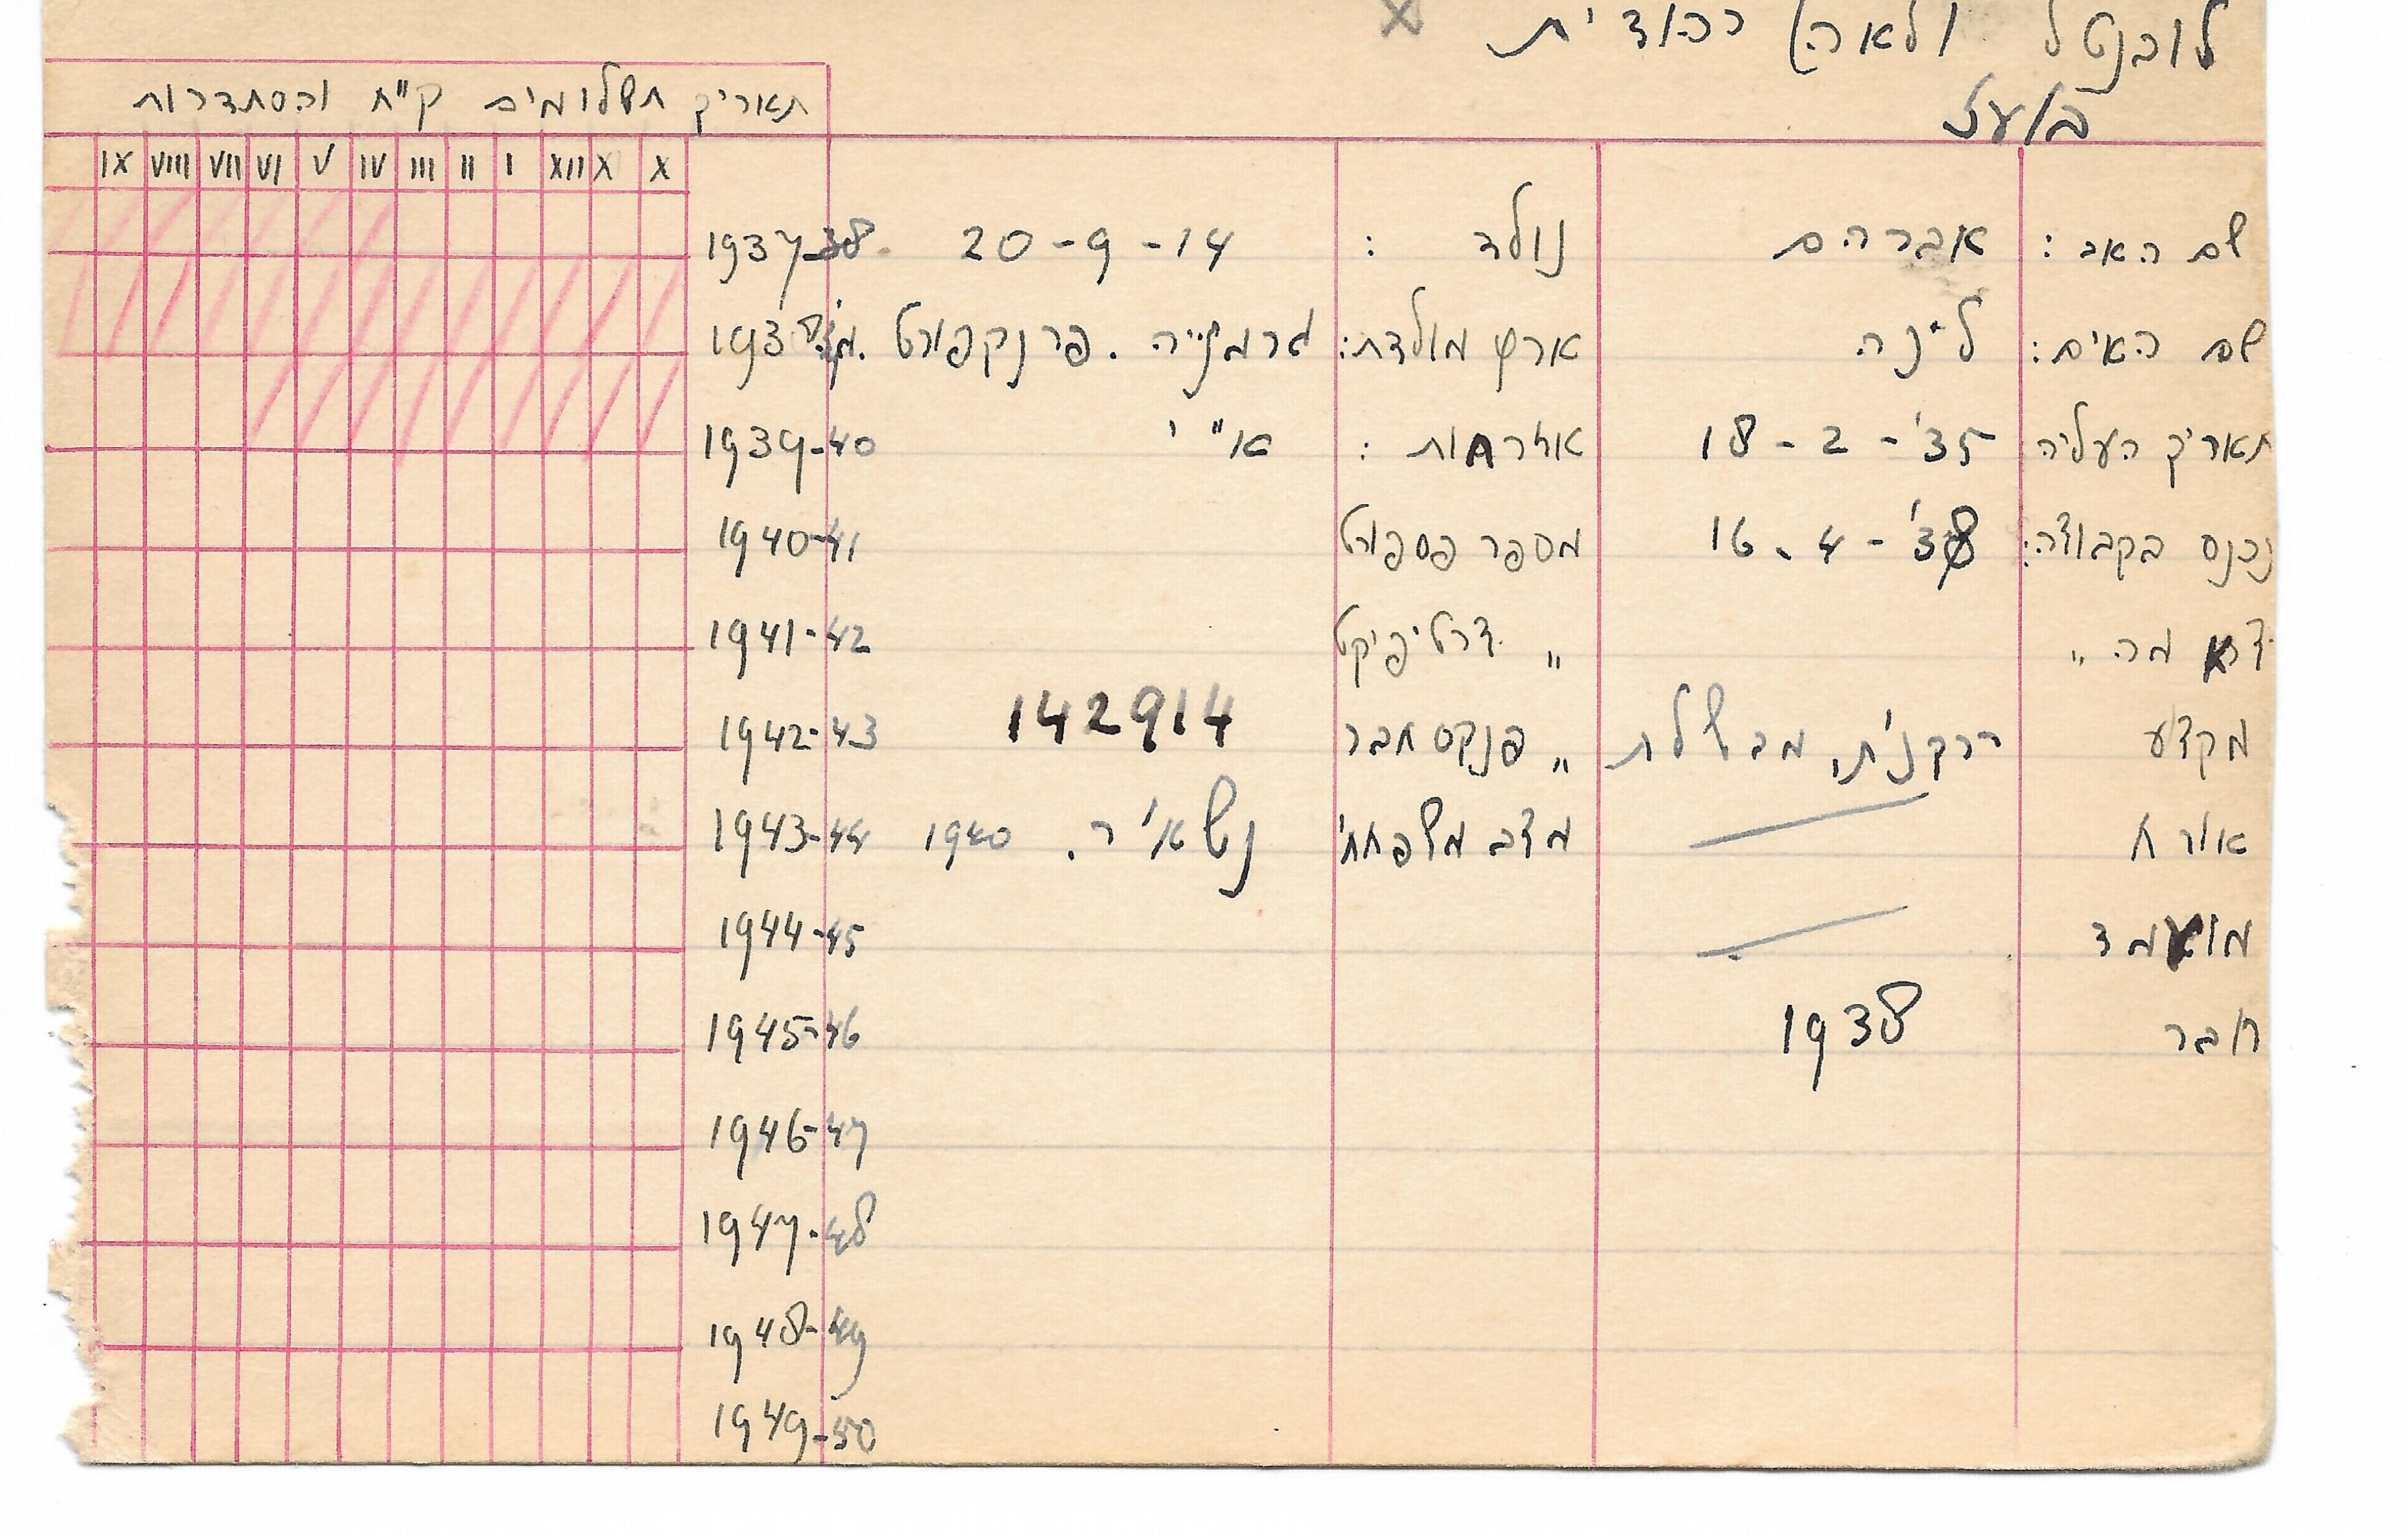 לובנטל (לאה) יהודית X
בועז
תאריך תשלומים ק"ח והסתדרות
X X XII I II III IV V VI VII VIII IX
שם האב : אברהם נולד : 20-9-14 1937-38
שם האים : לינה ארץ מולדת : גרמניה . פרנקפורט
תאריך העליה 18-2-'35 אזרחות : א"י 1939-40
נכנס בקבוצה : 16.4-'38 מספר פספורט 1940-41
מה " " צרטיפיקט 1941-42
מקצע מבשלת " פנקס חבר 142914 1942-43
אורח מצב משפחתי 1940 1943-44
מועמד 1944-45
חבר 1938 1945-46
1946-47
1947-48
1948-49
1949-50